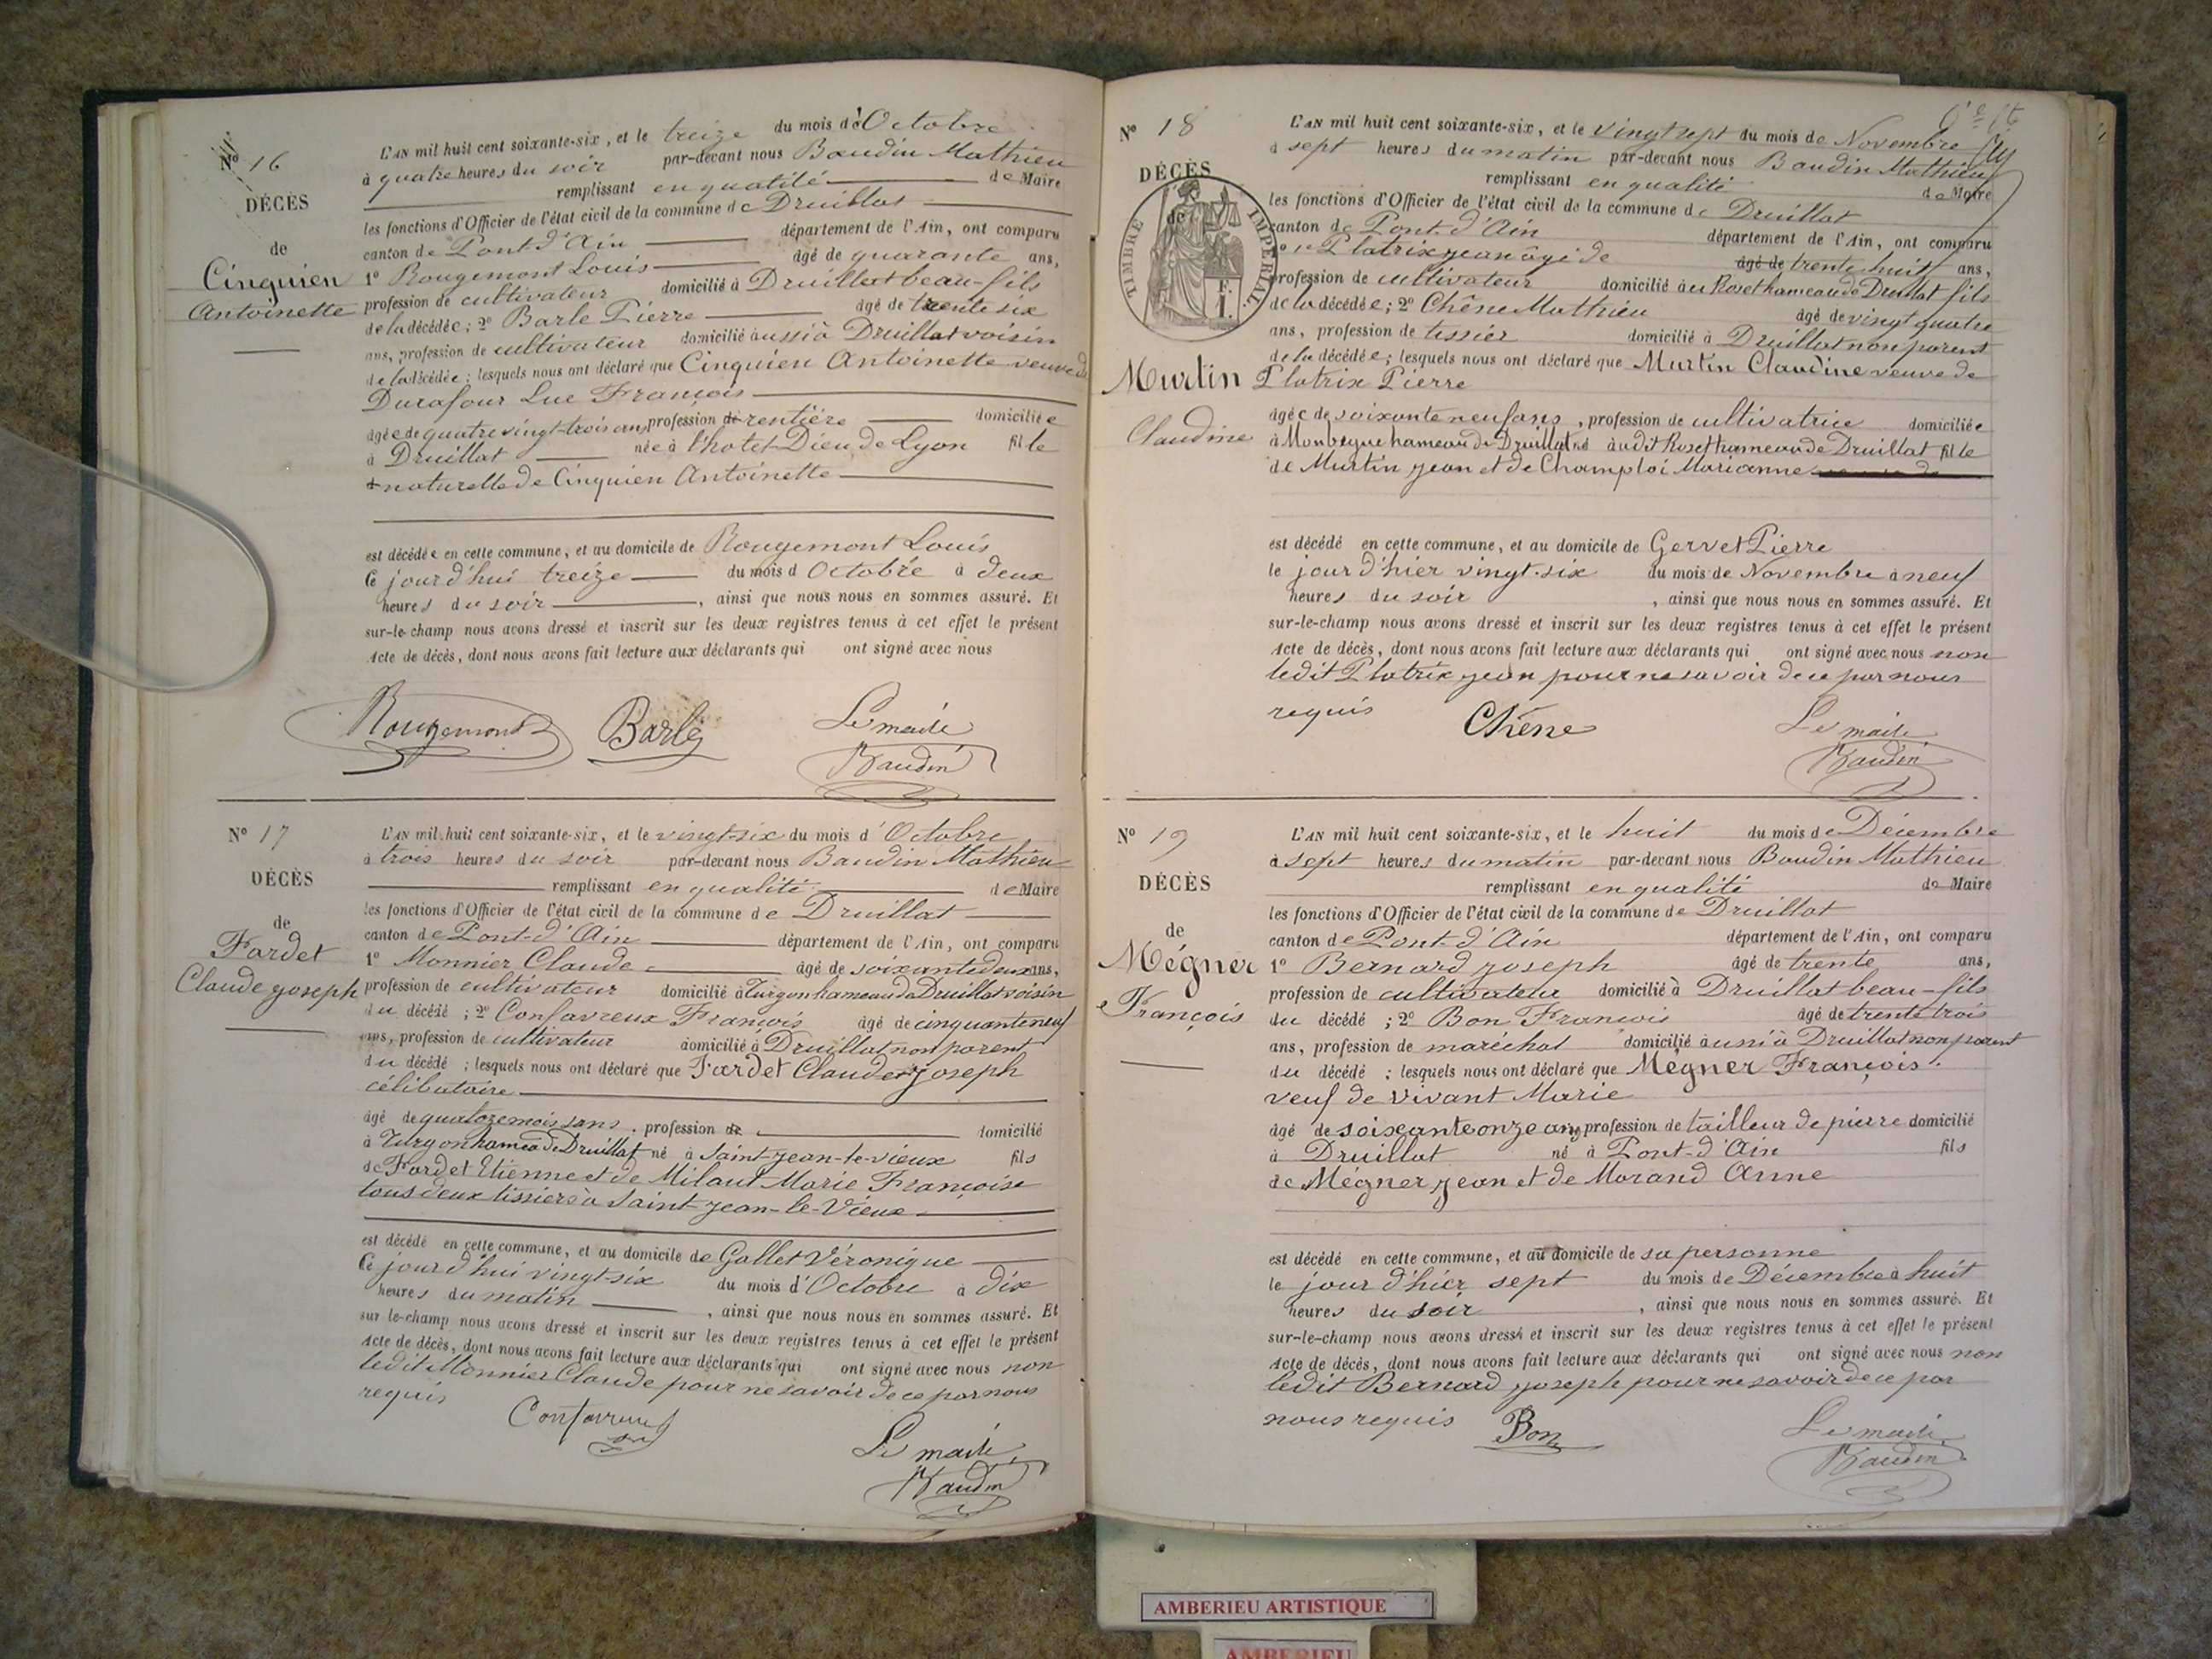 Nº 16
DÉCÈS
de
Cinquien
Antoinette
L'AN mil huit cent soixante-six, et le treize du mois d'Octobre
à quatre heures du soir par-devant nous Baudin Mathieu
remplissant en qualité de Maire
les fonctions d'Officier de l'état civil de la commune de Druillat
canton de Pont-d'Ain département de l'Ain, ont comparu
1º Rougemont Louis âgé de quarante ans,
profession de cultivateur domicilié à Druillat beau-fils
de la décédée; 2º Barle Pierre âgé de trente six
ans, profession de cultivateur domicilié aussi à Druillat voisin
de la décédée; lesquels nous ont déclaré que Cinquien Antoinette veuve de
Durafour Luc François
âgée de quatre vingt-trois ans, profession de rentière domiciliée
à Druillat née à l'hotel-Dieu de Lyon fille
naturelle de Cinquien Antoinette
est décédée en cette commune, et au domicile de Rougemont Louis
Ce jourd'hui treize du mois d Octobre à deux
heures du soir, ainsi que nous nous en sommes assuré. Et
sur-le-champ nous avons dressé et inscrit sur les deux registres tenus à cet effet le présent
Acte de décès, dont nous avons fait lecture aux déclarants qui ont signé avec nous
Rougemont Barle Le maire
Baudin
Nº 17
DÉCÈS
de
Fardet
Claude joseph
L'AN mil huit cent soixante-six, et le vingt-six du mois d'Octobre
à trois heures du soir par-devant nous Baudin Mathieu
remplissant en qualité de Maire
les fonctions d'Officier de l'état civil de la commune de Druillat
canton de Pont-d'Ain département de l'Ain, ont comparu
1º Monnier Claude âgé de soixante deux ans,
profession de cultivateur domicilié à Turgon hameau de Druillat voisin
du décédé; 2º Confavreux François âgé de cinquante neuf
ans, profession de cultivateur domicilié à Druillat non parent
du décédé; lesquels nous ont déclaré que Fardet Claude joseph
célibataire
âgé de quatorze mois sans, profession de domicilié
à Turgon hameau de Druillat né à Saint-jean-le-vieux fils
de Fardet Etienne et de Milaut Marie Françoise
tous deux tissiers à Saint-jean-le-Vieux
est décédé en cette commune, et au domicile de Gallet Véronique
Ce jourd'hui vingt-six du mois d'Octobre à dix
heures du matin, ainsi que nous nous en sommes assuré. Et
sur le-champ nous avons dressé et inscrit sur les deux registres tenus à cet effet le présent
Acte de décès, dont nous avons fait lecture aux déclarants qui ont signé avec nous non
ledit Monnier Claude pour ne savoir de ce par nous
requis
Confavreux
Le maire
Baudin
Nº 18
DÉCÈS
de
TIMBRE IMPÉRIAL
F.
1.
Murtin
Claudine
L'AN mil huit cent soixante-six, et le vingt sept du mois de Novembre
à sept heures du matin par-devant nous Baudin Mathieu
remplissant en qualité de Maire
les fonctions d'Officier de l'état civil de la commune de Druillat
canton de Pont-d'Ain département de l'Ain, ont comparu
1º Platrix jean âgé de âgé de trente huit ans,
profession de cultivateur domicilié au Roset hameau de Druillat fils
de la décédée; 2º Chêne Mathieu âgé de vingt quatre
ans, profession de tissier domicilié à Druillat non parent
de la décédée; lesquels nous ont déclaré que Murtin Claudine veuve de
Platrix Pierre
âgée de soixante neuf ans, profession de cultivatrice domiciliée
à hameau de Druillat né audit Roset hameau de Druillat fille
de Murtin jean et de Champloi Marianne
est décédé en cette commune, et au domicile de Gervet Pierre
le jour d'hier vingt-six du mois de Novembre à neuf
heures du soir, ainsi que nous nous en sommes assuré. Et
sur-le-champ nous avons dressé et inscrit sur les deux registres tenus à cet effet le présent
Acte de décès, dont nous avons fait lecture aux déclarants qui ont signé avec nous non
ledit Platrix jean pour ne savoir de ce par nous
requis Chêne Le maire
Baudin
Nº 19
DÉCÈS
de
Mégner
François
L'AN mil huit cent soixante-six, et le huit du mois de Décembre
à sept heures du matin par-devant nous Baudin Mathieu
remplissant en qualité de Maire
les fonctions d'Officier de l'état civil de la commune de Druillat
canton de Pont-d'Ain département de l'Ain, ont comparu
1º Bernard joseph âgé de trente ans,
profession de cultivateur domicilié à Druillat beau-fils
du décédé; 2º Bon François âgé de trente trois
ans, profession de maréchal domicilié aussi à Druillat non parent
du décédé; lesquels nous ont déclaré que Mégner François
veuf de Vivant Marie
âgé de soixante onze ans, profession de tailleur de pierre domicilié
à Druillat né à Pont-d'Ain fils
de Mégner jean et de Morand Anne
est décédé en cette commune, et au domicile de sa personne
le jour d'hier sept du mois de Décembre à huit
heures du soir, ainsi que nous nous en sommes assuré. Et
sur-le-champ nous avons dressé et inscrit sur les deux registres tenus à cet effet le présent
Acte de décès, dont nous avons fait lecture aux déclarants qui ont signé avec nous non
ledit Bernard joseph pour ne savoir de ce par
nous requis Bon Le maire
Baudin
AMBERIEU ARTISTIQUE
AMBERIEU